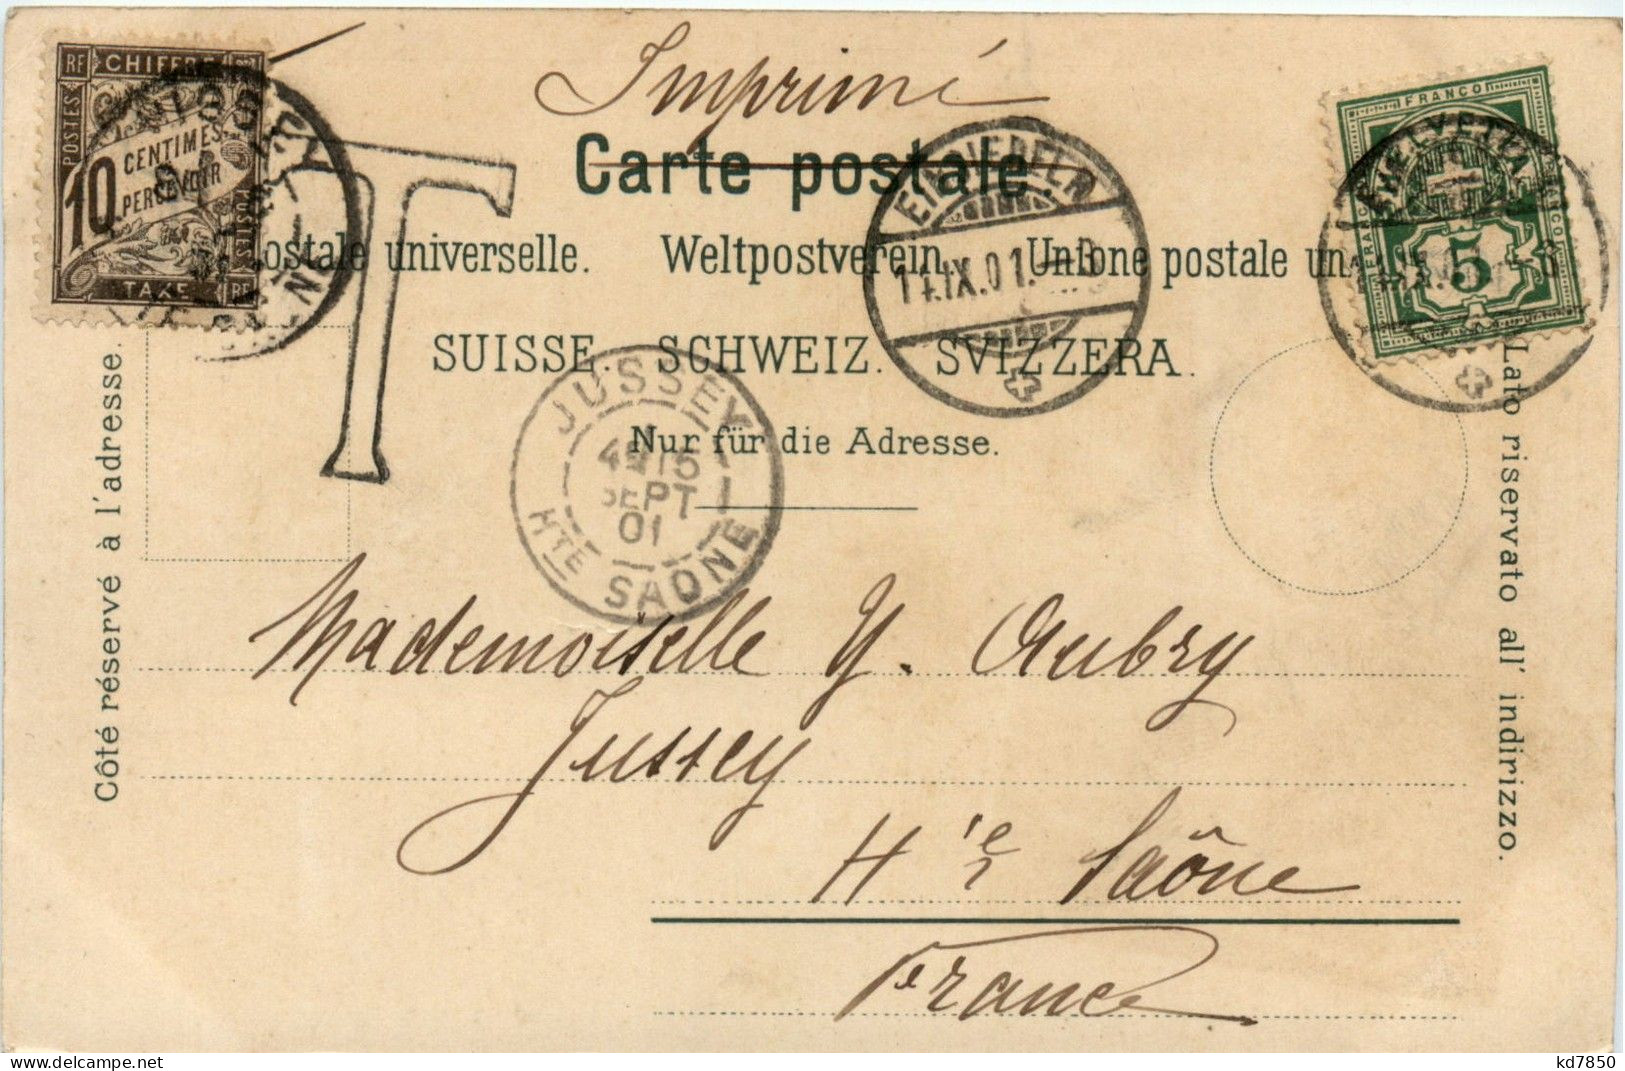 Imprimé
RF CHIFFRE
POSTES
10 CENTIMES
PERCEVOIR
POSTES
TAXE RF
T
Carte postale.
EINSIEDELN
14.IX.01.
FRANCO
HELVETIA
5
FRANCO
postale universelle. Weltpostverein. Unione postale un
SUISSE. SCHWEIZ. SVIZZERA.
Nur für die Adresse.
JUSSEY
15
SEPT
01
HTE SAÔNE
Côté réservé à l'adresse.
Lato riservato all' indirizzo.
Mademoiselle Y. Aubry
Jussey
Hte Saône
France
kd7850